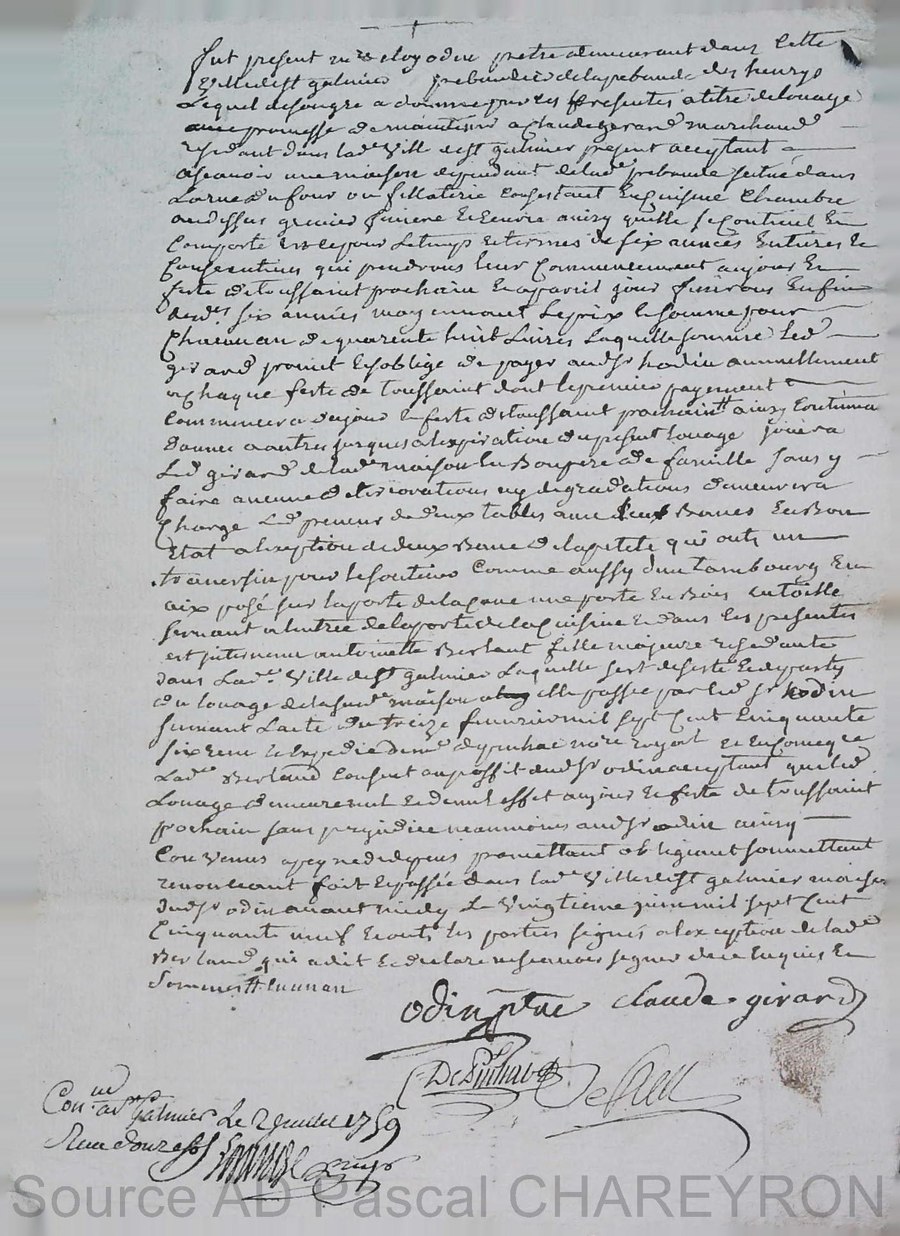 fut present mre eloy odin pretre demeurant dans cette
Ville de st galmier prebandier de la prebande des henrys
Lequel de son gre a donne par ces presentes a titre de louage
avec promesse de maintenir a Claude gerard marchand
residant dans lade Ville de st galmier present acceptant
ascavoir une maison dependant de lade prebande scitué dans
La rue du four ou fillaterie Consistant En Cuisine Chambre
au dessus grenier Cave Et ainsy quelle se Contient Et
Comporte Et ce pour Le temps et termes de six années Entieres Et
Consecutives qui prendrons leur Commencement au jour Et
feste de toussaint prochain Et a pareil jour finirons En fin
desds six années moyennant Le prix Et somme pour
Chacun an de quarente huit Livres Laquelle somme Led
girard promet Et soblige de payer aud sr hodin annuellement
a Chaque feste de toussaint dont le premier payement
Commencera au jour Et feste de toussaint prochain ainsy Continuer
dannee a autre jusques a lexpiration du present louage jouira
Led girard de lade maison En Bon pere de famille sans y
faire aucune novations ny degradations demeurera
Charge Led preneur de deux tables avec Bancs En Bon
Etat a lexeption de deux Banc de la petite qui onts un
traversin pour le soutenir Comme aussy dun tambourg En
aix posé sur la porte de la Cave une porte En Bois
servant a lentree de la porte de la Cuisine Et dans les presentes
est intervenue antoinette Berlant fille majeure residante
dans Lade Ville de st galmier Laquelle sest desisté Et departy
du louage de lasude maison a elle passée par led sr hodin
suivant Lacte du treize fevrier mil sept Cent Cinquante
six recu Et expedie Et En Conseqce
Lade Berland Consent au proffit dud sr odin acceptant que led
Louage demeure nul Et de nul effet au jour Et feste de toussaint
prochain sans prejudice neanmoins aud sr odin ainsy
Convenus a peyne de depens promettant obligeant soumettant
renonceant fait Et passée dans lade Ville de st galmier maison
dud sr odin avant midy Le Vingtieme juin mil sept Cent
Cinquante neuf Et onts les parties signés a lexception de lade
Berland qui a dit Et declare ne scavoir signer de ce Enquis Et
Sommes
odin ptre Claude girard
Conlle a st galmier Le 2 juillet 1759
Recu douze sols
Source AD Pascal CHAREYRON